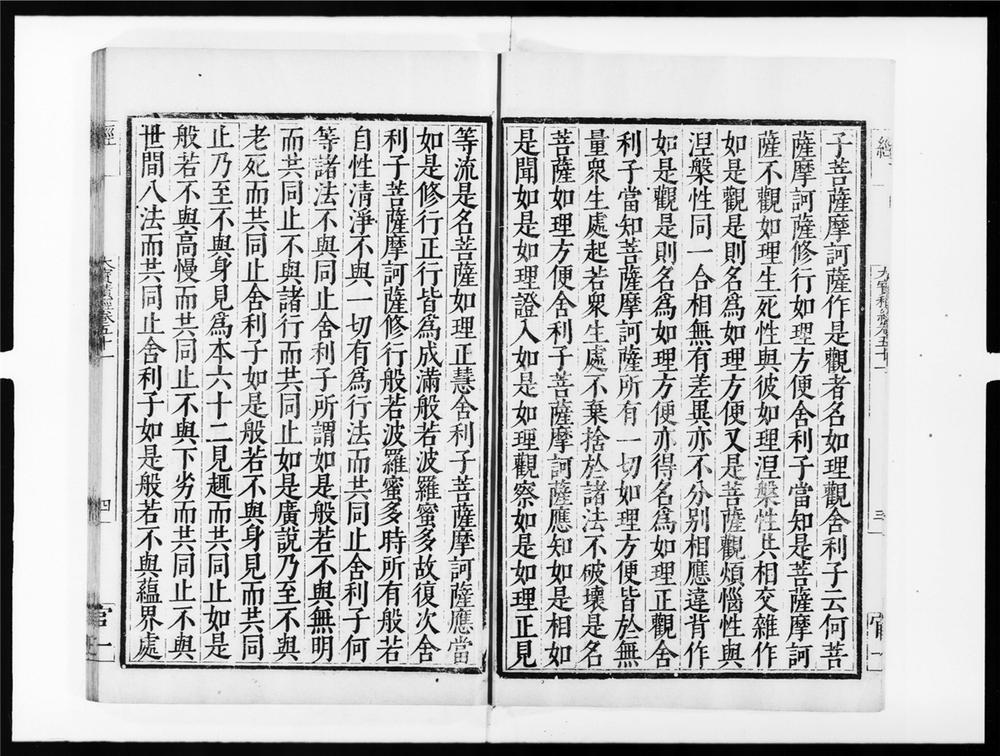 子菩薩摩訶薩作是觀者名如理觀舍利子云何菩
薩摩訶薩修行如理方便舍利子當知是菩薩摩訶
薩不觀如理生死性與彼如理涅槃性共相交雜作
如是觀是則名爲如理方便又是菩薩觀煩惱性與
涅槃性同一合相無有差異亦不分別相應違背作
如是觀是則名爲如理方便亦得名爲如理正觀舍
利子當知菩薩摩訶薩所有一切如理方便皆於無
量衆生處起若衆生處不棄捨於諸法不破壞是名
菩薩如理方便舍利子菩薩摩訶薩應知如是相如
是聞如是如理證入如是如理觀察如是如理正見
等流是名菩薩如理正慧舍利子菩薩摩訶薩應當
如是修行正行皆爲成滿般若波羅蜜多故復次舍
利子菩薩摩訶薩修行般若波羅蜜多時所有般若
自性清淨不與一切有爲行法而共同止舍利子何
等諸法不與同止舍利子所謂如是般若不與無明
而共同止不與諸行而共同止如是廣說乃至不與
老死而共同止舍利子如是般若不與身見而共同
止乃至不與身見爲本六十二見趣而共同止如是
般若不與高慢而共同止不與下劣而共同止不與
世間八法而共同止舍利子如是般若不與蘊界處
經
大寶積經卷五十一
四
官一